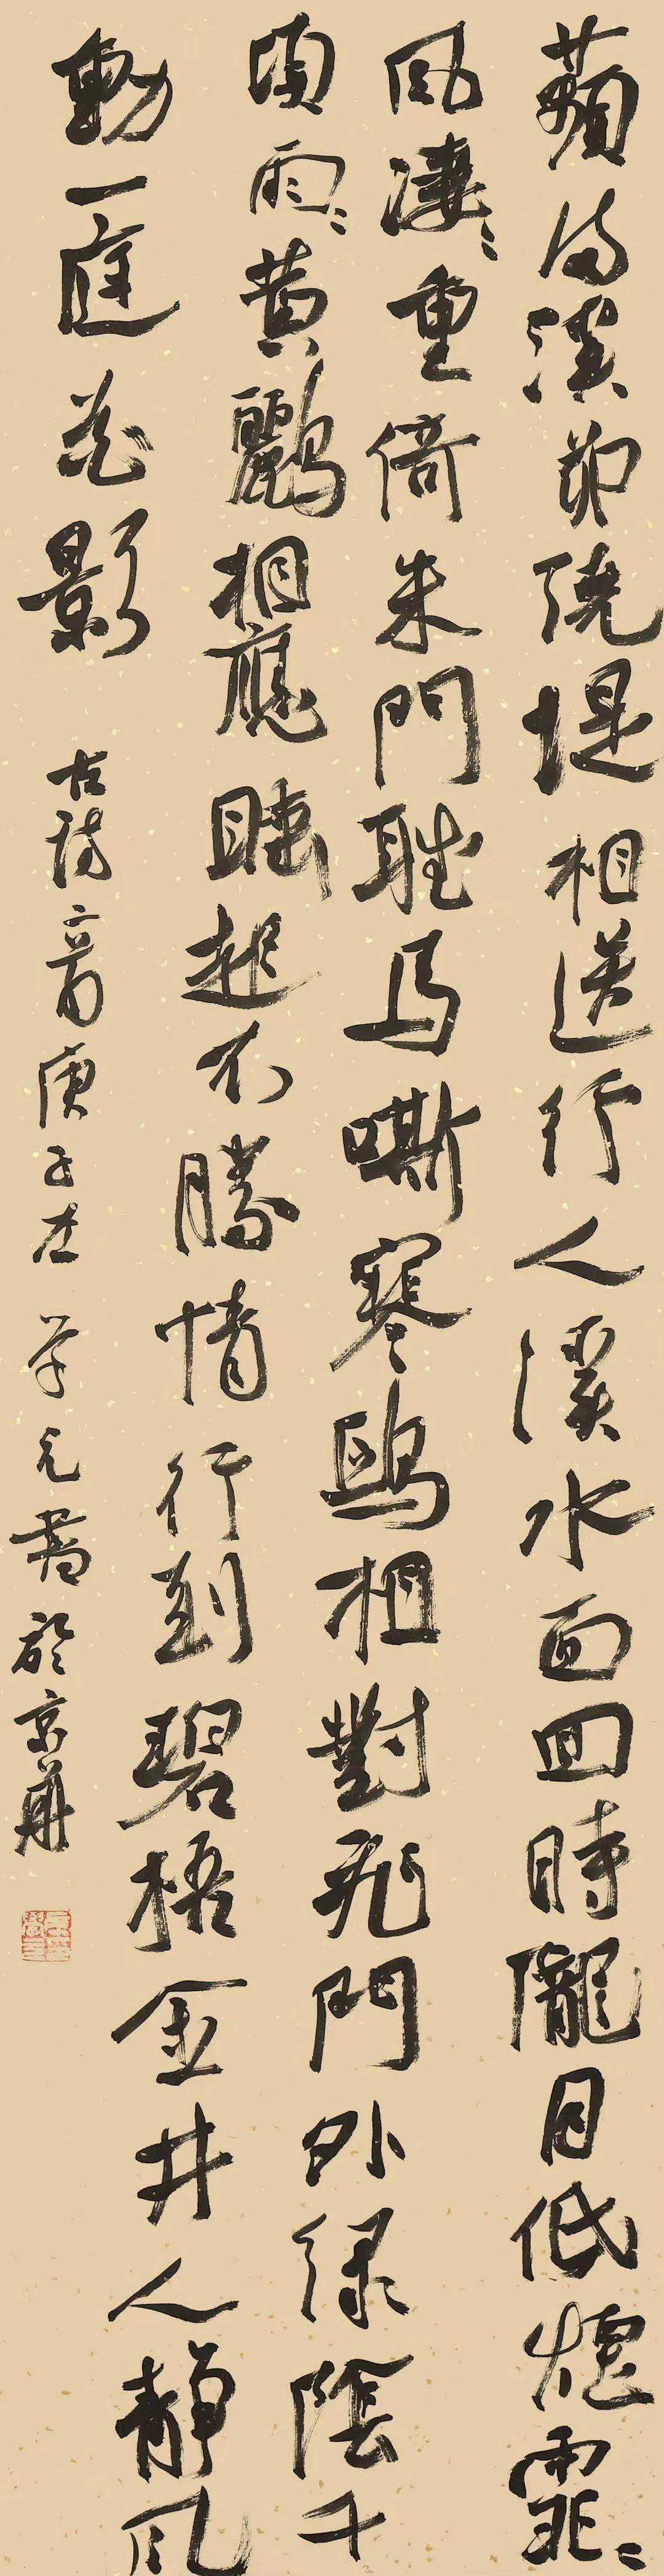 蘋满溪柳绕堤相送行人溪水西回時隴月低煙霏〻
風淒〻重倚朱門聽馬嘶寒鷗相對飛門外绿陰千
頃兩〻黄鸝相應睡起不勝情行到碧梧金井人靜風
動一庭花影
古詩二首庚子左学元書於京華